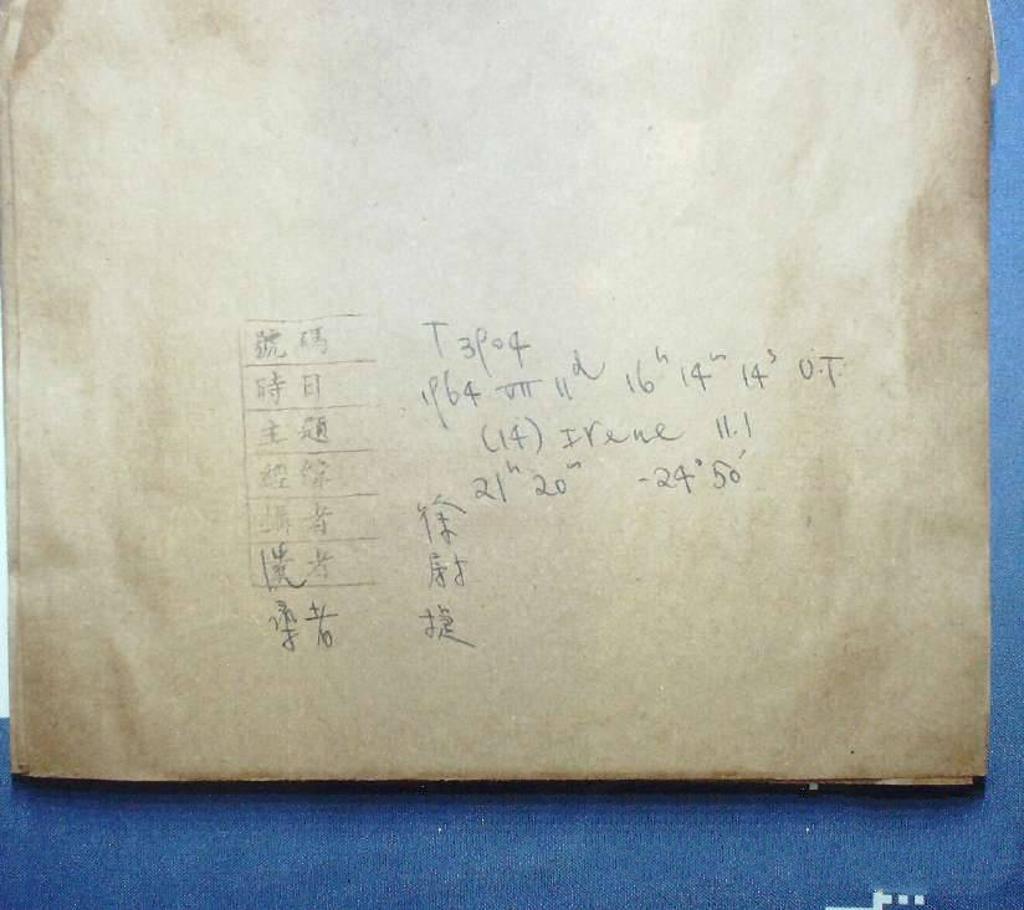 號碼 T 3904
時日 1964 VII 11ᵈ 16ʰ 14ᵐ 14ˢ U.T.
主題 (14) Irene 11.1
經綜 21ʰ 20ᵐ -24° 50′
攝者 徐
者 尉
者 捷